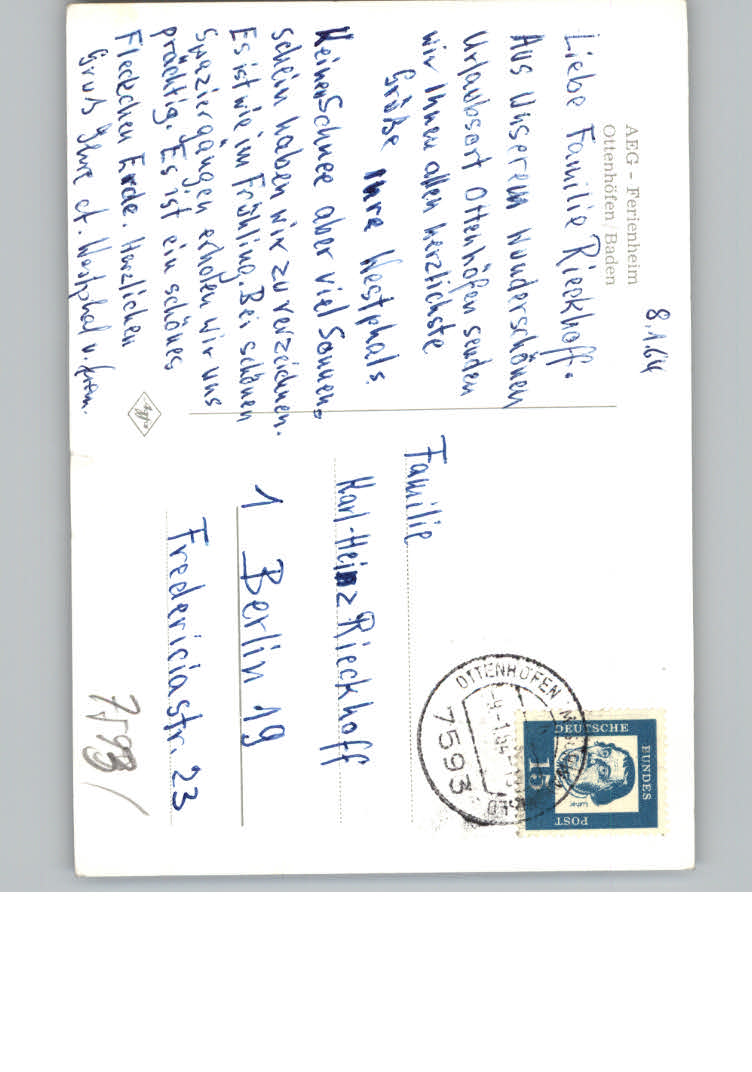 AEG - Ferienheim
Ottenhöfen/Baden
8.1.64
Liebe Familie Rieckhoff.
Aus Unserem Wunderschönen
Urlaubsort Ottenhöfen senden
wir Ihnen allen herzlichste
Grüße Ihre Westphals.
Keinen Schnee aber viel Sonnen-
schein haben wir zu verzeichnen.
Es ist wie im Frühling. Bei schönen
Spaziergängen erholen wir uns
prächtig. Es ist ein schönes
Fleckchen Erde. Herzlichen
Gruß Ihre A. Westphal u.
Agfa
Familie
Karl-Heinz Rieckhoff
1 Berlin 19
Fredericiastr. 23
7593
OTTENHÖFEN
7593
DEUTSCHE
BUNDES
POST
15
Luther